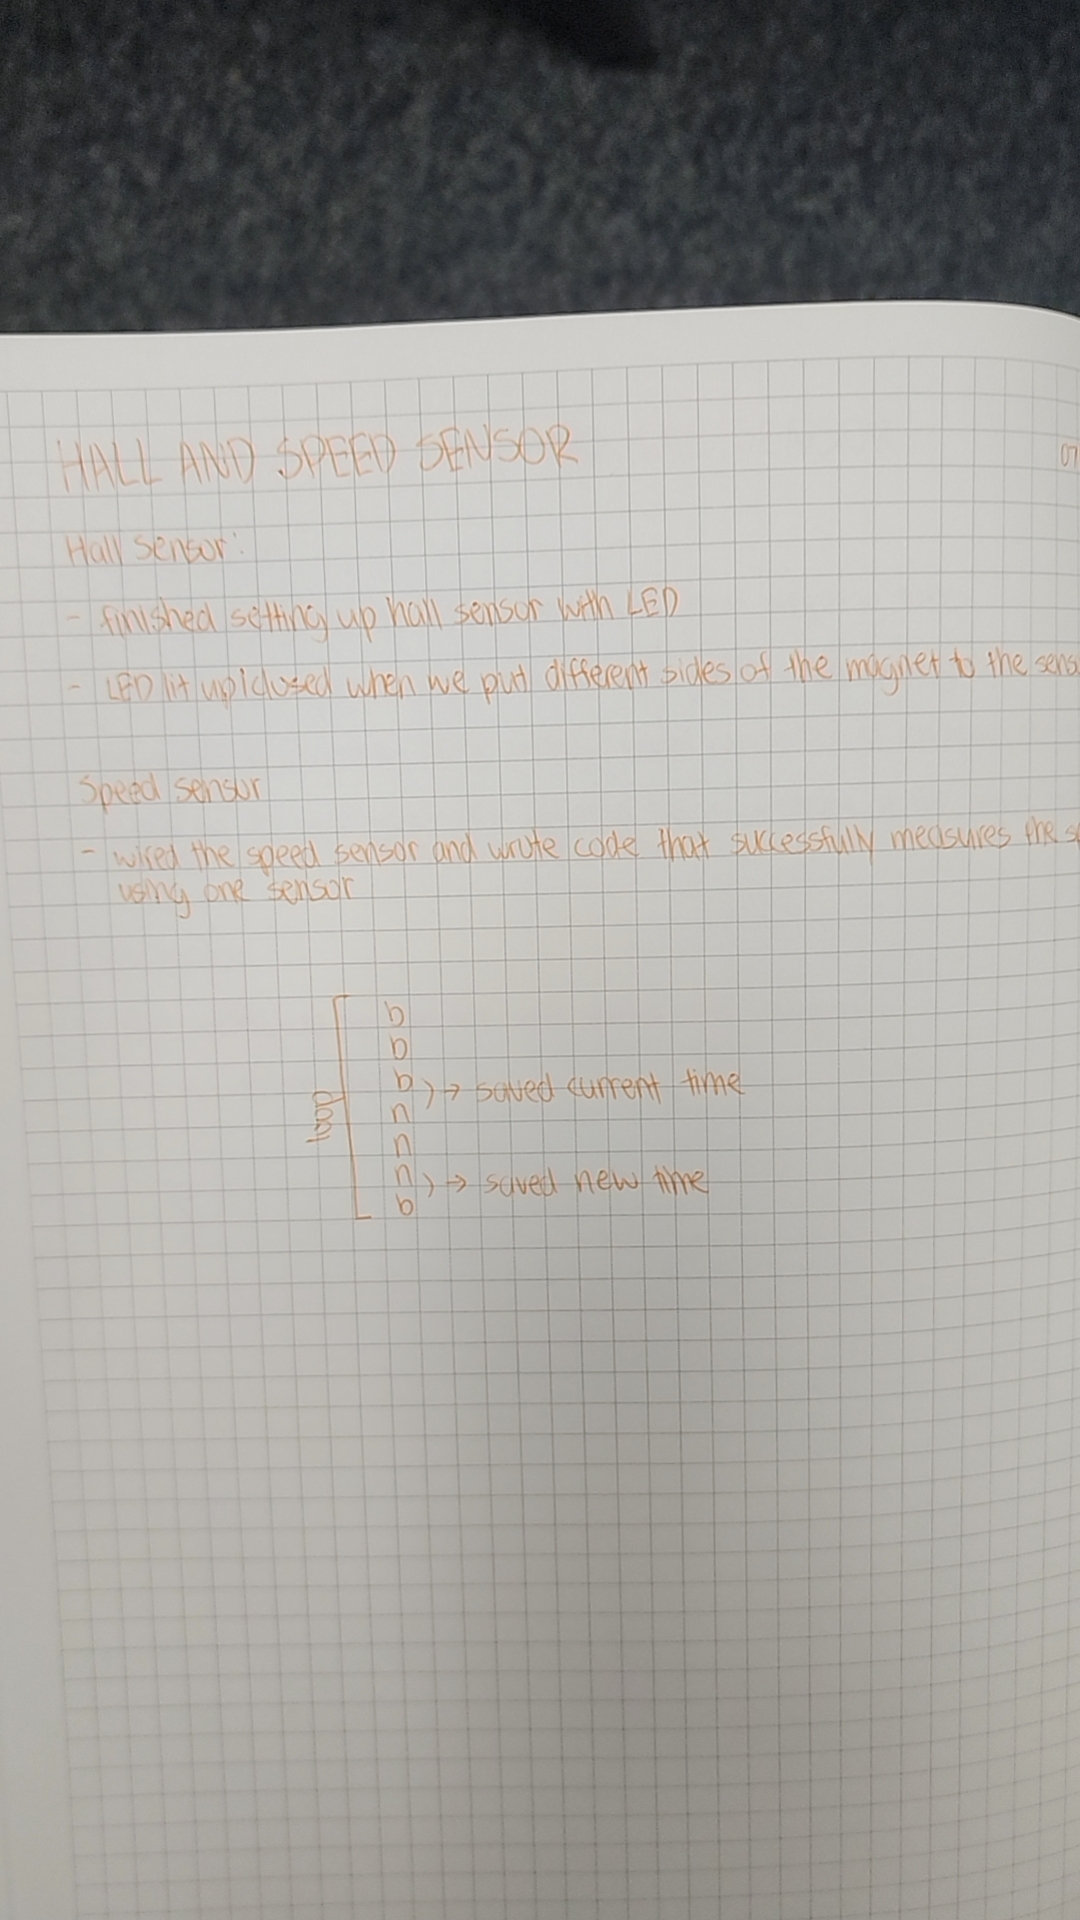 HALL AND SPEED SENSOR
07
Hall sensor:
- finished setting up hall sensor with LED
- LED lit up/closed when we put different sides of the magnet to the sens
Speed sensor
- wired the speed sensor and wrote code that successfully measures the s
using one sensor
b
b
b
→ saved current time
n
n
n
→ saved new time
b
loop